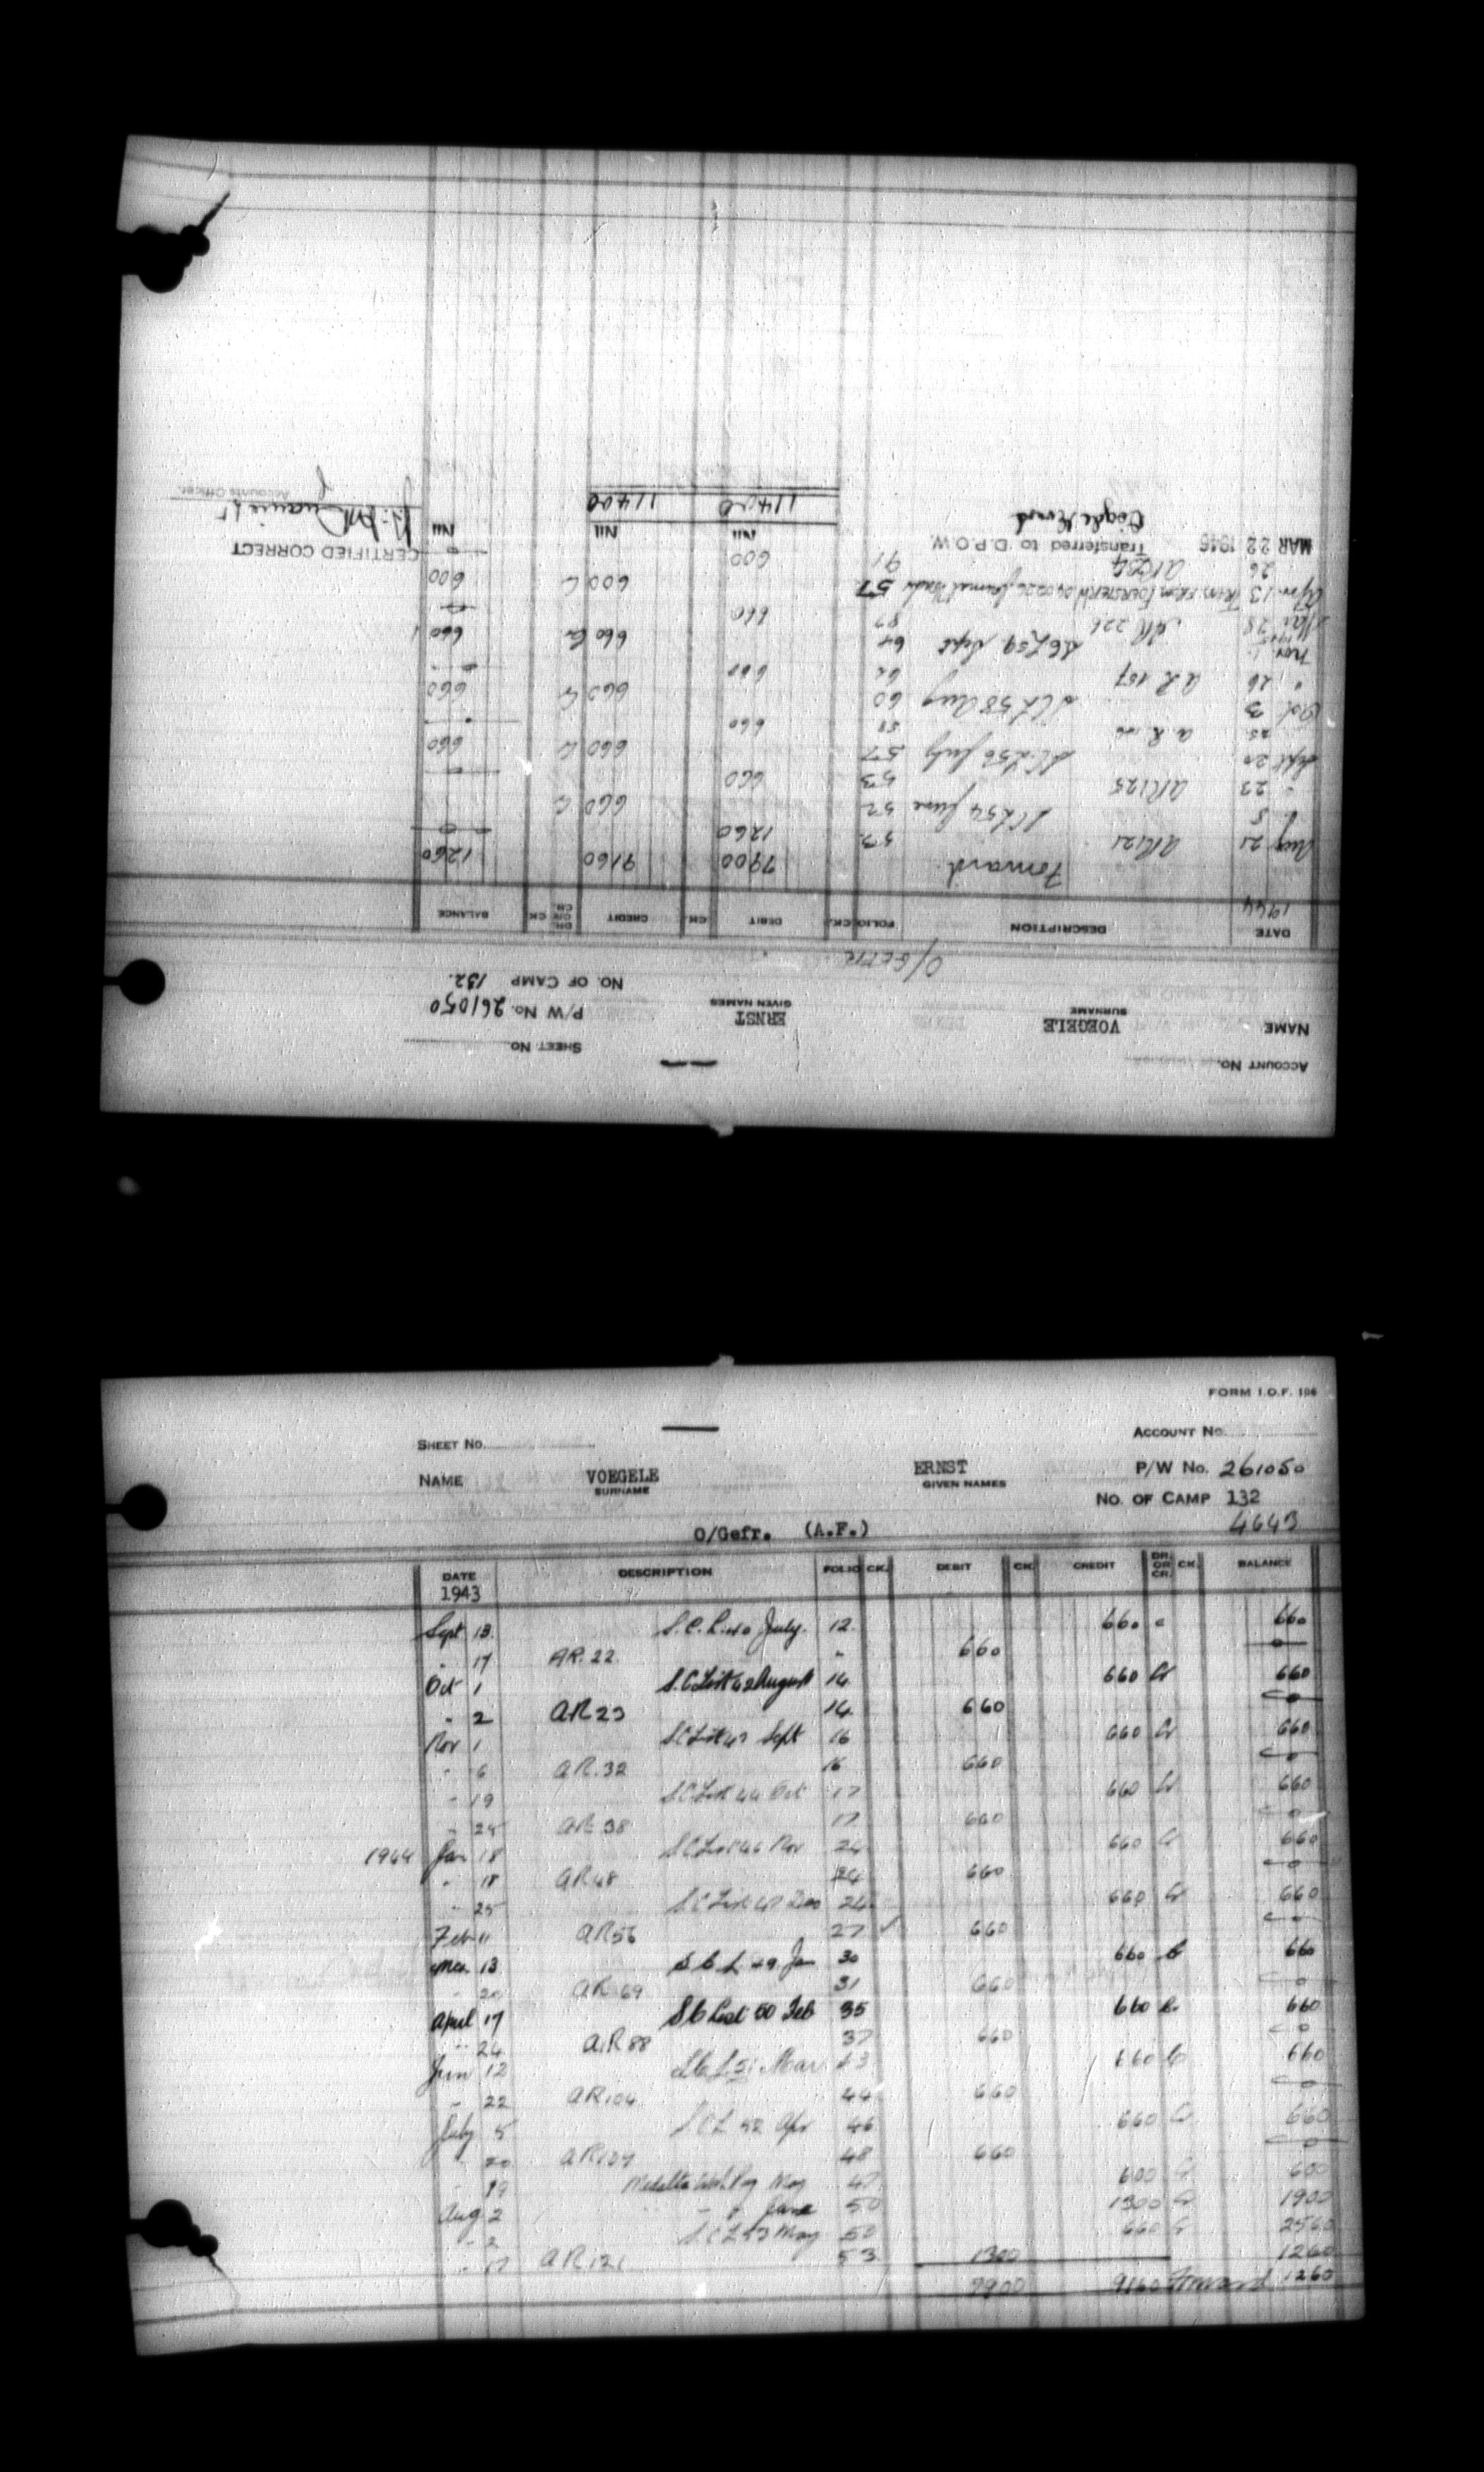 FORM I.O.F. 106
SHEET No. ACCOUNT No.
NAME VOEGELE ERNST P/W No. 261050
SURNAME GIVEN NAMES
NO. OF CAMP 132
4643
O/Gefr. (A.F.)
DATE DESCRIPTION FOLIO CK. DEBIT CK. CREDIT DR. OR CR. CK. BALANCE
1943
Sept 13 S.C.L. 40 July. 12 660 660
" 17 AR. 22 " 660 0
Oct 1 S.C List 42 August 14 660 Cr 660
" 2 AR 23 14 660 0
Nov 1 SC List 43 Sept 16 660 Cr 660
" 6 AR. 32 16 660 0
" 19 SC List 44 Oct 17 660 Cr 660
" 25 AR 38 17 660 0
1944 Jan 18 SC List 46 Nov 24 660 Cr 660
" 18 AR 48 24 660 0
" 25 SC List 47 Dec 24 660 Cr 660
Feb 11 AR 56 27 ✓ 660 0
Mar 13 S C L 49 Jan 30 660 660
" 20 AR 69 31 660 0
April 17 S C List 50 Feb 35 660 Cr 660
" 24 A.R 88 37 660 0
Jun 12 S C L 51 Mar 43 660 Cr 660
" 22 AR 104 44 660 0
July 5 S C L 52 Apr 46 660 Cr 660
" 20 AR 109 48 660 0
" 19 May 47 600 Cr 600
Aug 2 " " June 50 1300 Cr 1900
" 2 S C L 53 May 50 660 Cr 2560
" 17 AR 121 53 1300 1260
7900 9160 Forward 1260
ACCOUNT No. SHEET No.
NAME VOEGELE ERNST P/W No. 261050
SURNAME GIVEN NAMES
NO. OF CAMP 132.
O/GEFR.
DATE DESCRIPTION FOLIO CK. DEBIT CK. CREDIT DR. OR CR. CK. BALANCE
1944
Forward 7900 9160 1260
Aug 21 AR 121 53 1260 0
" 5 SCL 54 June 52 660 Cr
" 23 AR 125 53 660 0
Sept 20 SCL 56 July 57 660 Cr 660
25 A.R. 58 660
Oct 3 SCL 58 Aug 60 660 Cr 660
" 26 A.R 157 62 660 0
Nov 1 SCL 59 Sept 64 660 Cr 660
1945
Mar 28 AR 226 660 0
Apr 13 57 600 Cr 600
26 AR 91 600 0
MAR 22 1946 Transferred to D.P.O.W. Nil Nil Nil
11400 11400
CERTIFIED CORRECT
Accounts Officer.